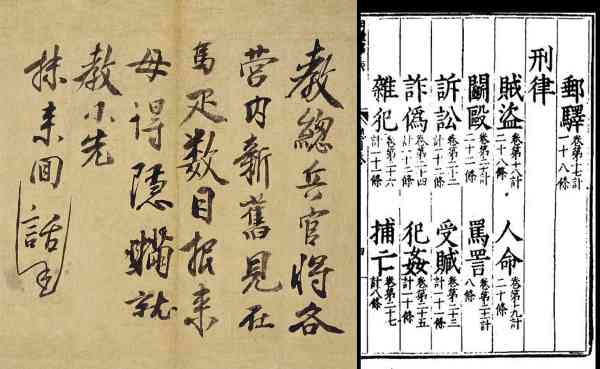 教總兵官將各
營內新舊見在
馬疋數目報来
毋得隱瞞就
教小先
抹来回話
郵驛 卷第十七計一十八條
刑律
賊盜 卷第十八計二十八條 人命 卷第十九計二十條
鬭毆 卷第二十計二十二條 罵詈 卷第二十一計八條
訴訟 卷第二十二計一十二條 受贓 卷第二十三計一十一條
詐偽 卷第二十四計一十二條 犯姦 卷第二十五計一十條
雜犯 卷第二十六計一十一條 捕亡 卷第二十七計八條